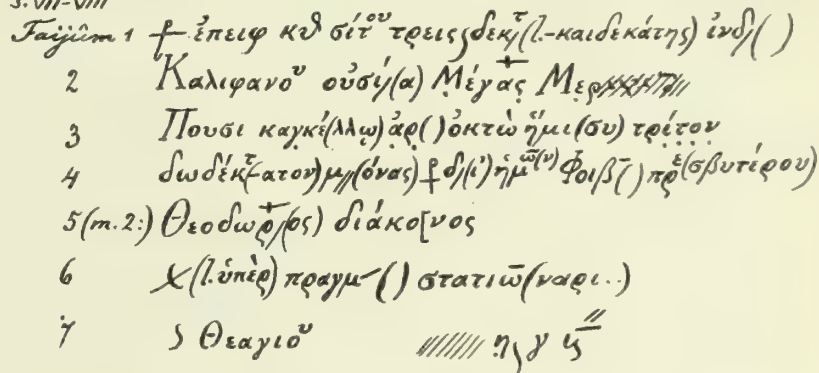 s. VII-VIII
Faijûm 1 ⳨ ἐπειφ κθ σίτου τρεις ς δεκ/τ (l. -καιδεκάτης) ἰνδ/( )
2 Καλιφανοῦ οὐσί/(α) Μέγας Μερ
3 Πουσι καγκέ(λλῳ) ἀρ( ) ὀκτὼ ἥμι(συ) τρίτον
4 δωδέκτ(ατον) μ//(όνας) ⳨ δ/(ι') ἡμῶ(ν) Φοιβ( ) πρε(σβυτέρου)
5 (m. 2:) Θεοδωρ/(ος) διάκο[νος
6 (l. ὑπὲρ) πραγμ( ) στατιω(ναρι..)
7 ς Θεαγιου η γ ις